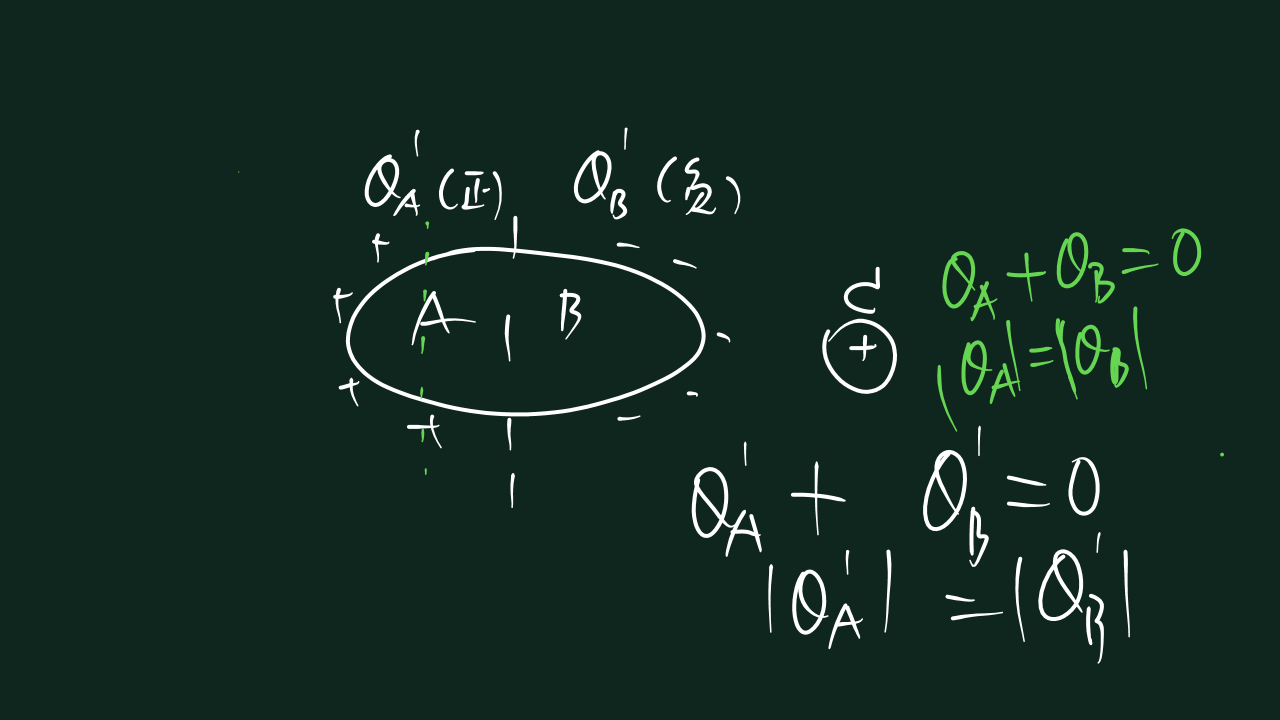 Q'_A (正) Q'_B (负)
+ − −
+ A B − C
+ +
+ −
+ −
Q_A + Q_B = 0
|Q_A| = |Q_B|
Q'_A + Q'_B = 0
|Q'_A| = |Q'_B|